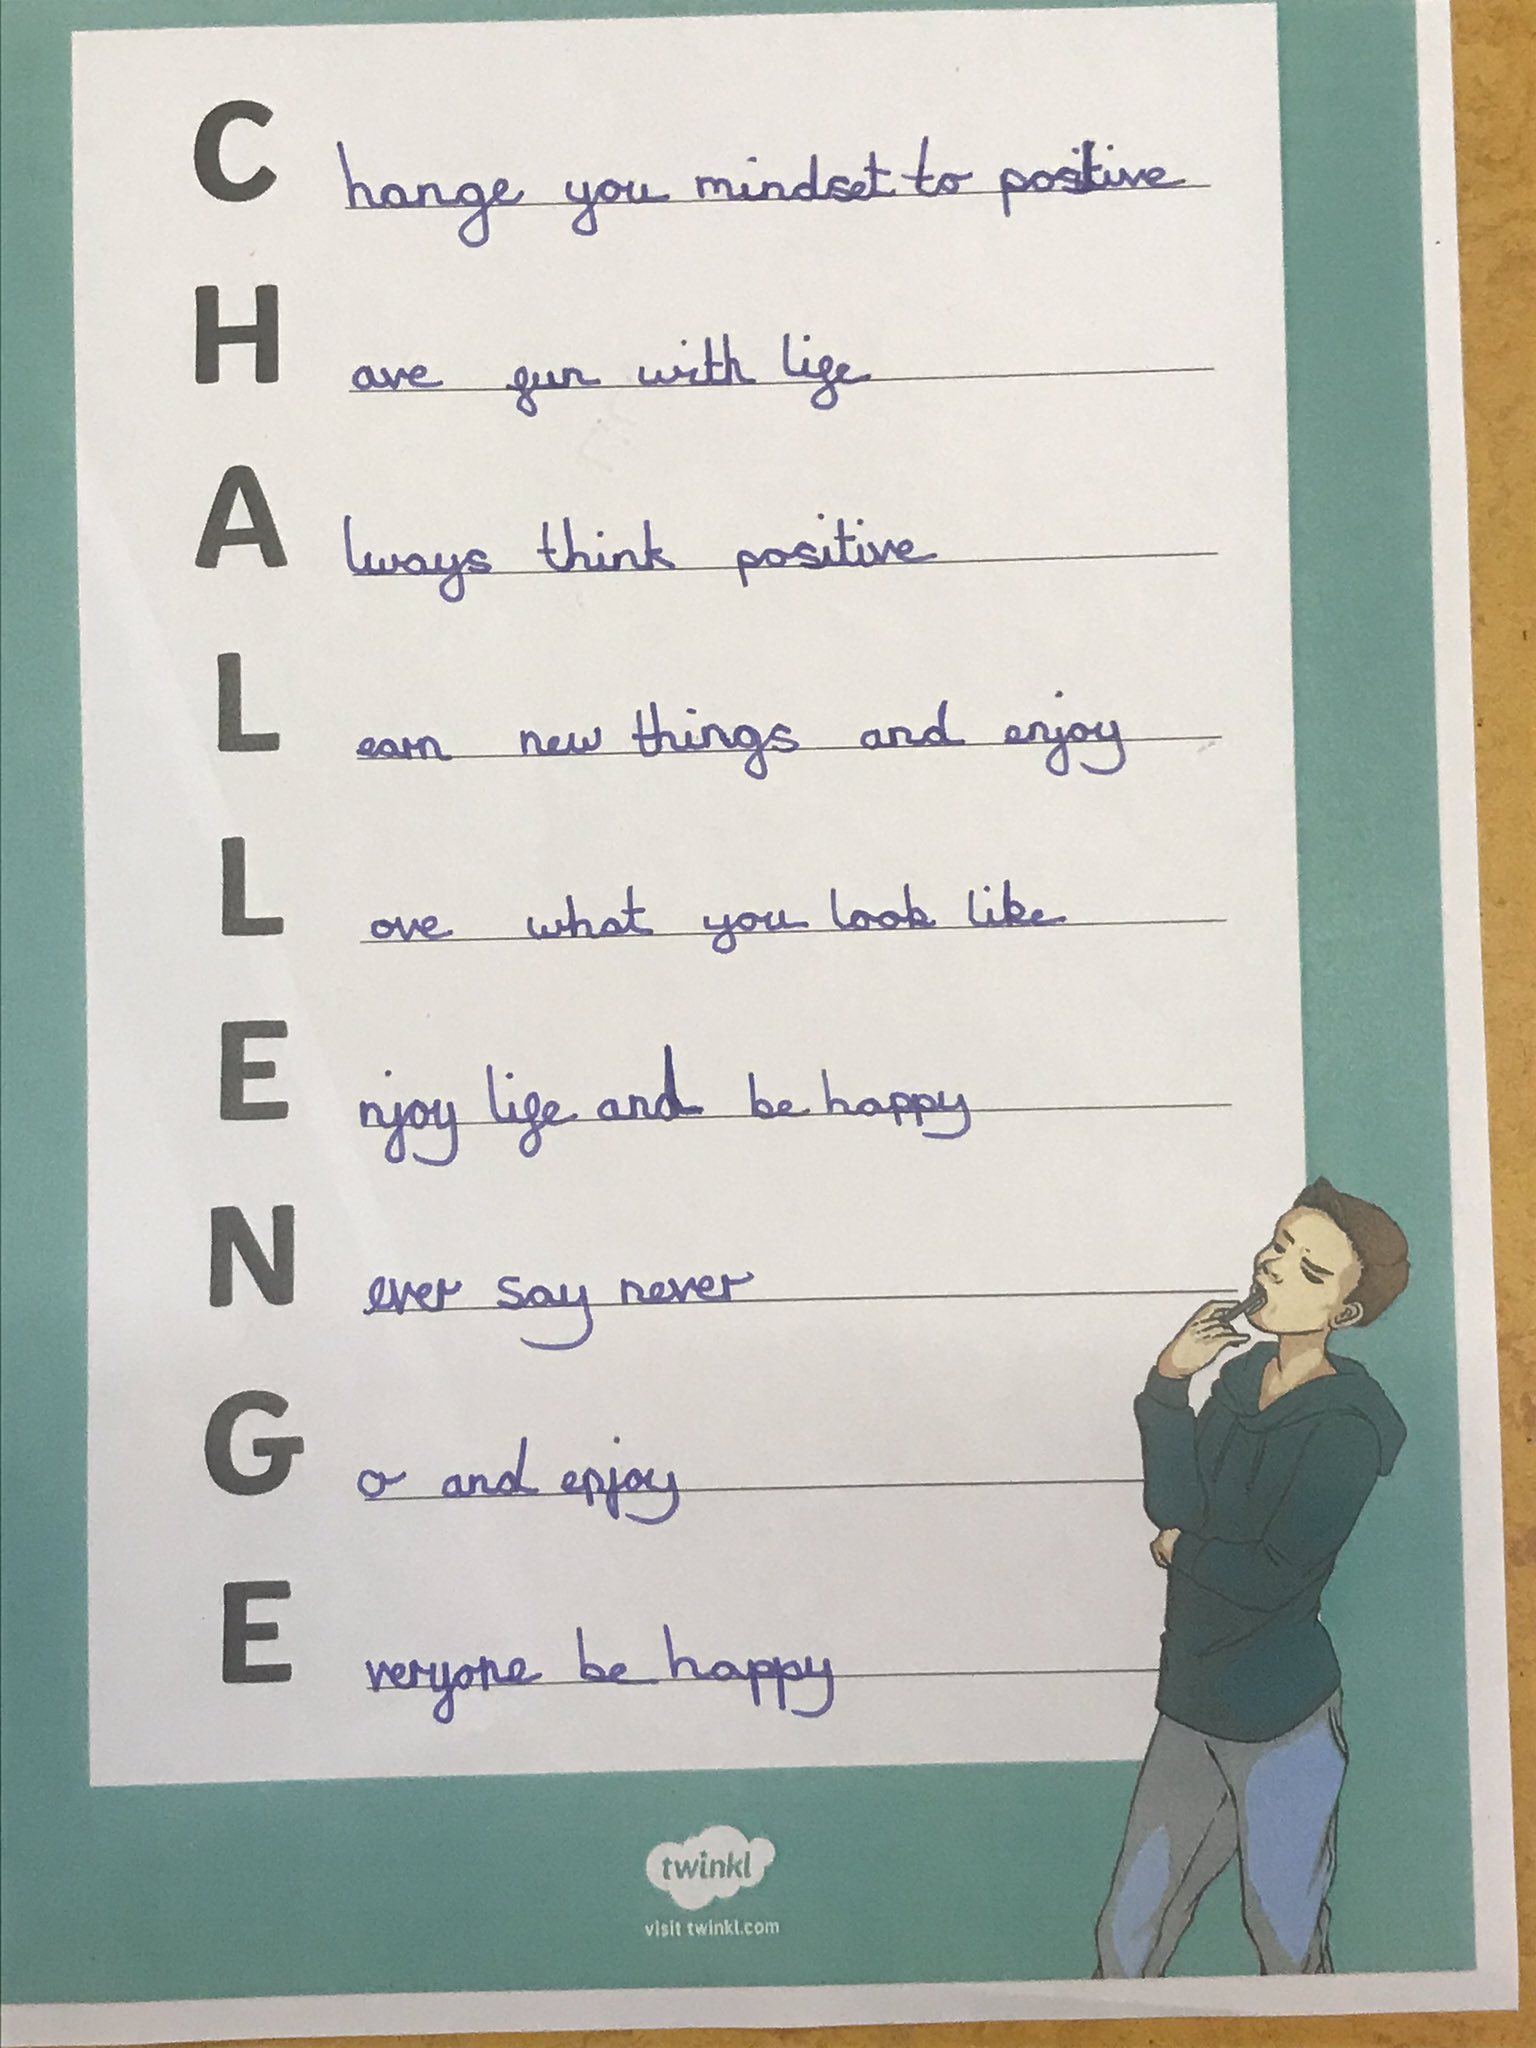 Change you mindset to positive
Have fun with life
Always think positive
Learn new things and enjoy
Love what you look like
Enjoy life and be happy
Never say never
Go and enjoy
Everyone be happy
twinkl
visit twinkl.com